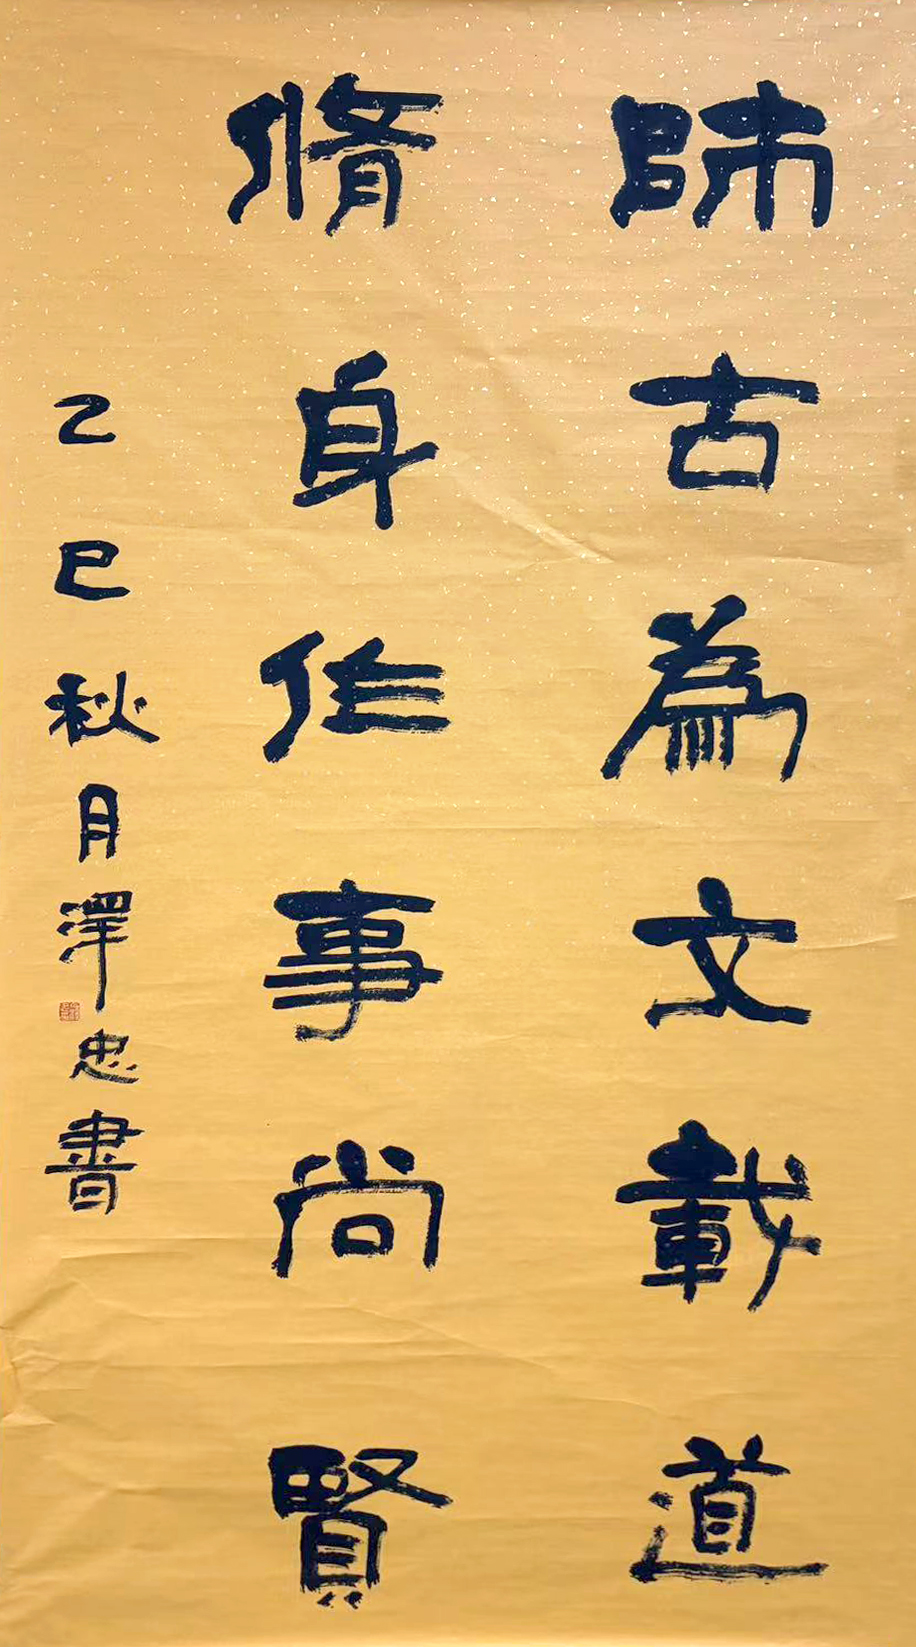 師古為文載道
脩身作事尚賢
乙巳秋月澤忠書